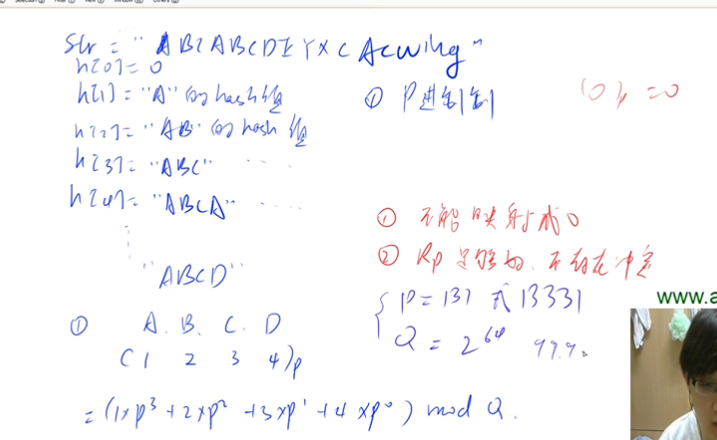 Str = "ABCABCDEYXCAcwing"
h[0] = 0
h[1] = "A" 的 hash 值
① P进制 (0)p = 0
h[2] = "AB" 的 hash 值
h[3] = "ABC" ....
h[4] = "ABCA" ....
① 不能映射成 0
"ABCD"
② Rp 足够好, 不存在冲突
① A. B. C. D
P = 131 或 13331
www.a
(1 2 3 4)p
Q = 2^64 99.9
= (1×p^3 + 2×p^2 + 3×p^1 + 4×p^0) mod Q.